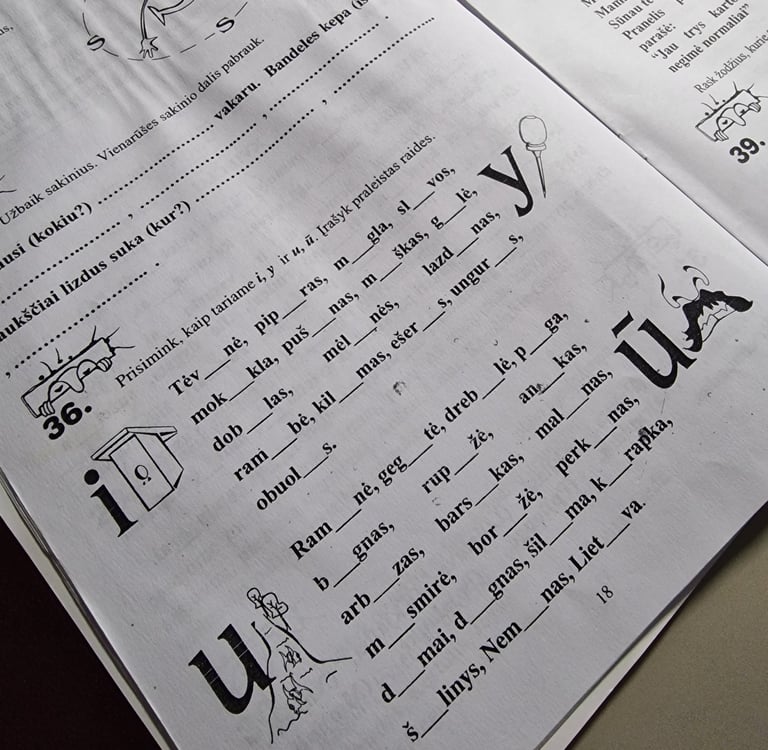 S
S
Užbaik sakinius. Vienarūšes sakinio dalis pabraik.
usi (kokiu?) .................... vakaru. Bandeles kepa
.................... , .................... , ....................
aukščiai lizdus suka (kur?) .................... , .................... ,
, .................... .
36.
Prisimink, kaip tariame i, y ir u, ū. Įrašyk praleistas raides.
i
y
Tėv__nė, pip__ras, m__gla, sl__vos,
mok__kla, puš__nas, m__škas, g__lė,
dob__las, mėl__nės, lazd__nas,
ram__bė, kil__mas, ešer__s, ungur__s,
obuol__s.
u
ū
Ram__nė, geg__tė, dreb__lė, p__ga,
b__gnas, rup__žė, an__kas,
arb__zas, bars__kas, mal__nas,
m__smirė, bor__žė, perk__nas,
d__mai, d__gnas, šil__ma, k__rapka,
š__linys, Nem__nas, Liet__va.
18
Sūnau
Pranelis
parašė:
"Jau trys
negimė normaliai"
Rask žodžius,
39.